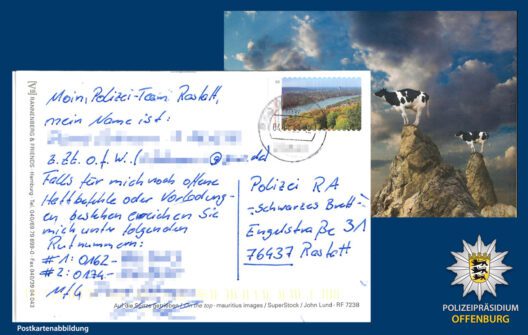 Moin, Polizei-Team Rastatt,
mein Name ist:
z. Zt. o.f.W. ( @ .de)
Falls für mich noch offene
Haftbefehle oder Vorladung-
en bestehen erreichen Sie
mich unter folgenden
Rufnummern:
#1: 0162-
#2: 0174-
MfG
Polizei RA
-Schwarzes Brett-
Engelstraße 31
76437 Rastatt
RANNENBERG & FRIENDS · Hamburg · Tel.
Auf die Spitze getrieben / On the top · mauritius images / SuperStock / John Lund · RF 7238
Postkartenabbildung
POLIZEIPRÄSIDIUM
OFFENBURG